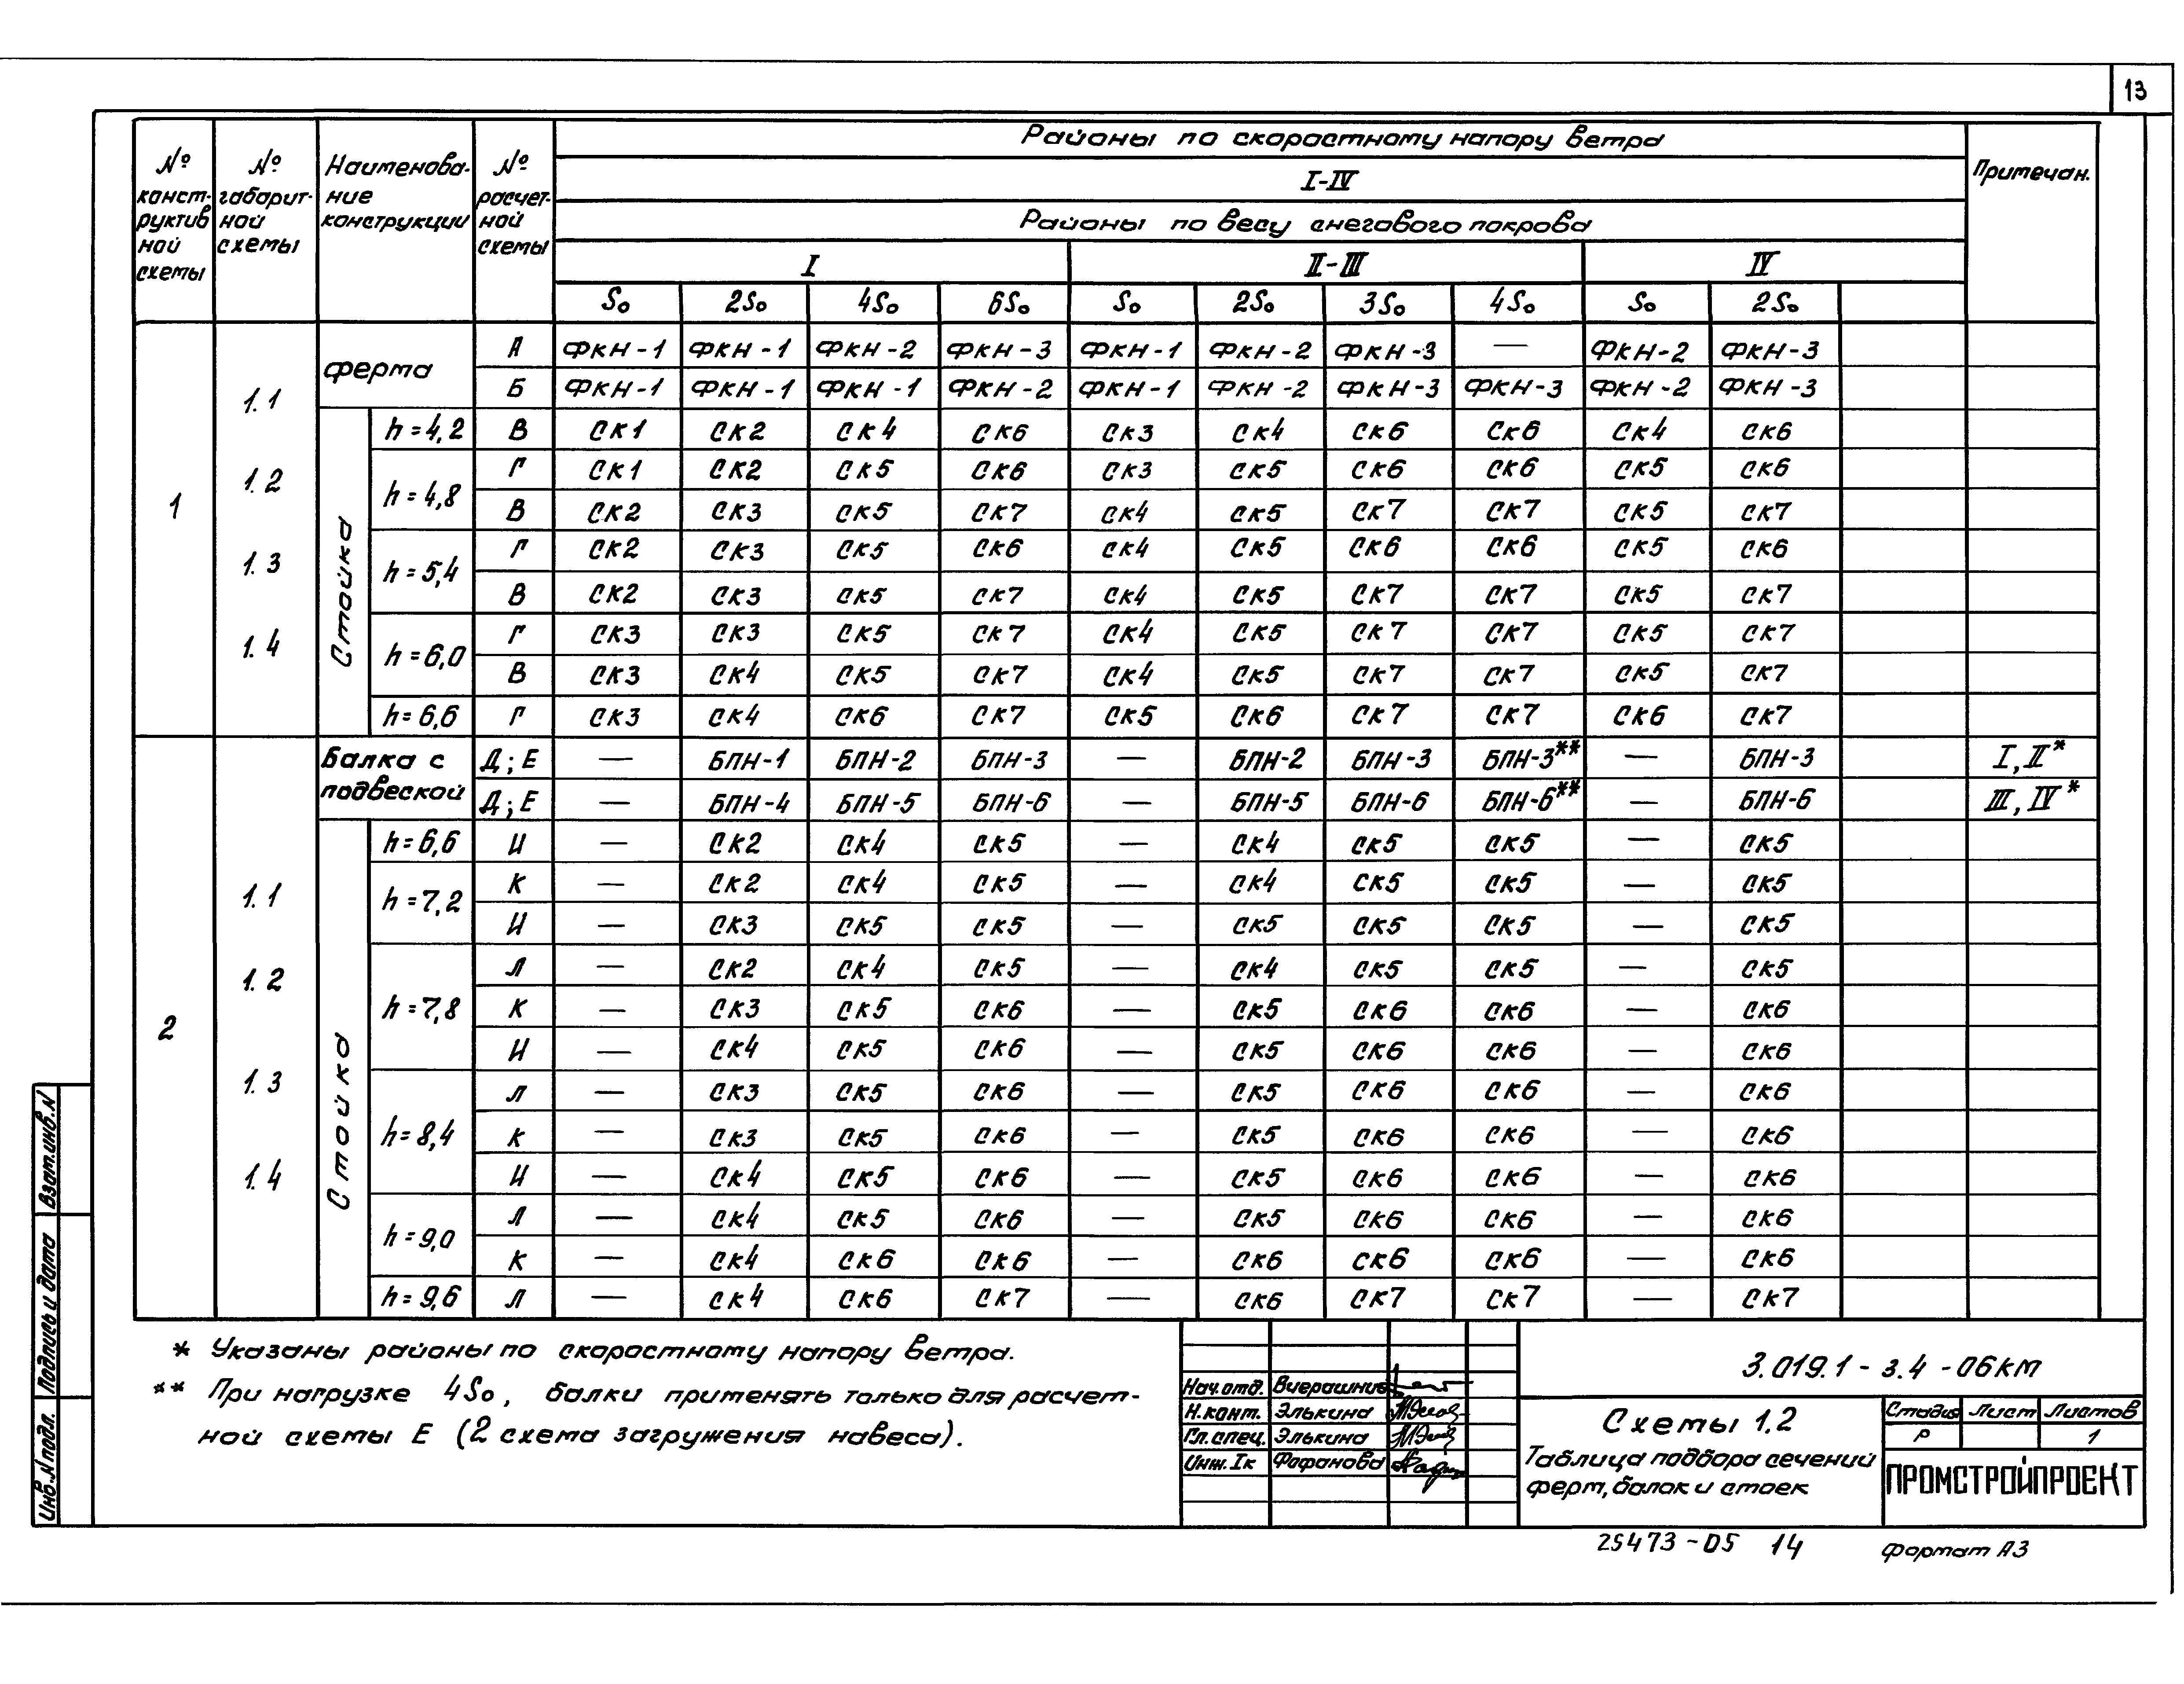 13
№ конструктивной схемы
№ габаритной схемы
Наименование конструкции
№ расчетной схемы
Районы по скоростному напору ветра
I-IV
Районы по весу снегового покрова
Примечан.
I II-III IV
S₀ 2S₀ 4S₀ 6S₀ S₀ 2S₀ 3S₀ 4S₀ S₀ 2S₀
1
1.1
1.2
1.3
1.4
ферма А ФКН-1 ФКН-1 ФКН-2 ФКН-3 ФКН-1 ФКН-2 ФКН-3 — ФКН-2 ФКН-3
Б ФКН-1 ФКН-1 ФКН-1 ФКН-2 ФКН-1 ФКН-2 ФКН-3 ФКН-3 ФКН-2 ФКН-3
Стойка
h=4,2 В СК1 СК2 СК4 СК6 СК3 СК4 СК6 СК6 СК4 СК6
h=4,8 Г СК1 СК2 СК5 СК6 СК3 СК5 СК6 СК6 СК5 СК6
В СК2 СК3 СК5 СК7 СК4 СК5 СК7 СК7 СК5 СК7
h=5,4 Г СК2 СК3 СК5 СК6 СК4 СК5 СК6 СК6 СК5 СК6
В СК2 СК3 СК5 СК7 СК4 СК5 СК7 СК7 СК5 СК7
h=6,0 Г СК3 СК3 СК5 СК7 СК4 СК5 СК7 СК7 СК5 СК7
В СК3 СК4 СК5 СК7 СК4 СК5 СК7 СК7 СК5 СК7
h=6,6 Г СК3 СК4 СК6 СК7 СК5 СК6 СК7 СК7 СК6 СК7
2
1.1
1.2
1.3
1.4
Балка с подвеской Д;Е — БПН-1 БПН-2 БПН-3 — БПН-2 БПН-3 БПН-3** — БПН-3 I, II*
Д;Е — БПН-4 БПН-5 БПН-6 — БПН-5 БПН-6 БПН-6** — БПН-6 III, IV*
Стойка
h=6,6 И — СК2 СК4 СК5 — СК4 СК5 СК5 — СК5
h=7,2 К — СК2 СК4 СК5 — СК4 СК5 СК5 — СК5
И — СК3 СК5 СК5 — СК5 СК5 СК5 — СК5
h=7,8 Л — СК2 СК4 СК5 — СК4 СК5 СК5 — СК5
К — СК3 СК5 СК6 — СК5 СК6 СК6 — СК6
И — СК4 СК5 СК6 — СК5 СК6 СК6 — СК6
h=8,4 Л — СК3 СК5 СК6 — СК5 СК6 СК6 — СК6
К — СК3 СК5 СК6 — СК5 СК6 СК6 — СК6
И — СК4 СК5 СК6 — СК5 СК6 СК6 — СК6
h=9,0 Л — СК4 СК5 СК6 — СК5 СК6 СК6 — СК6
К — СК4 СК6 СК6 — СК6 СК6 СК6 — СК6
h=9,6 Л — СК4 СК6 СК7 — СК6 СК7 СК7 — СК7
* Указаны районы по скоростному напору ветра.
** При нагрузке 4S₀, балки применять только для расчет-
ной схемы Е (2 схема загружения навеса).
Нач.отд. Вчерашние
Н.конт. Элькина
Гл.спец. Элькина
Инж.Iк Фофанова
3.019.1-3.4-06КМ
Схемы 1,2
Таблица подбора сечений
ферм, балок и стоек
Стадия Лист Листов
Р 1
ПРОМСТРОЙПРОЕКТ
25473-05 14
формат А3
Взам.инв.N
Подпись и дата
Инв.N подл.